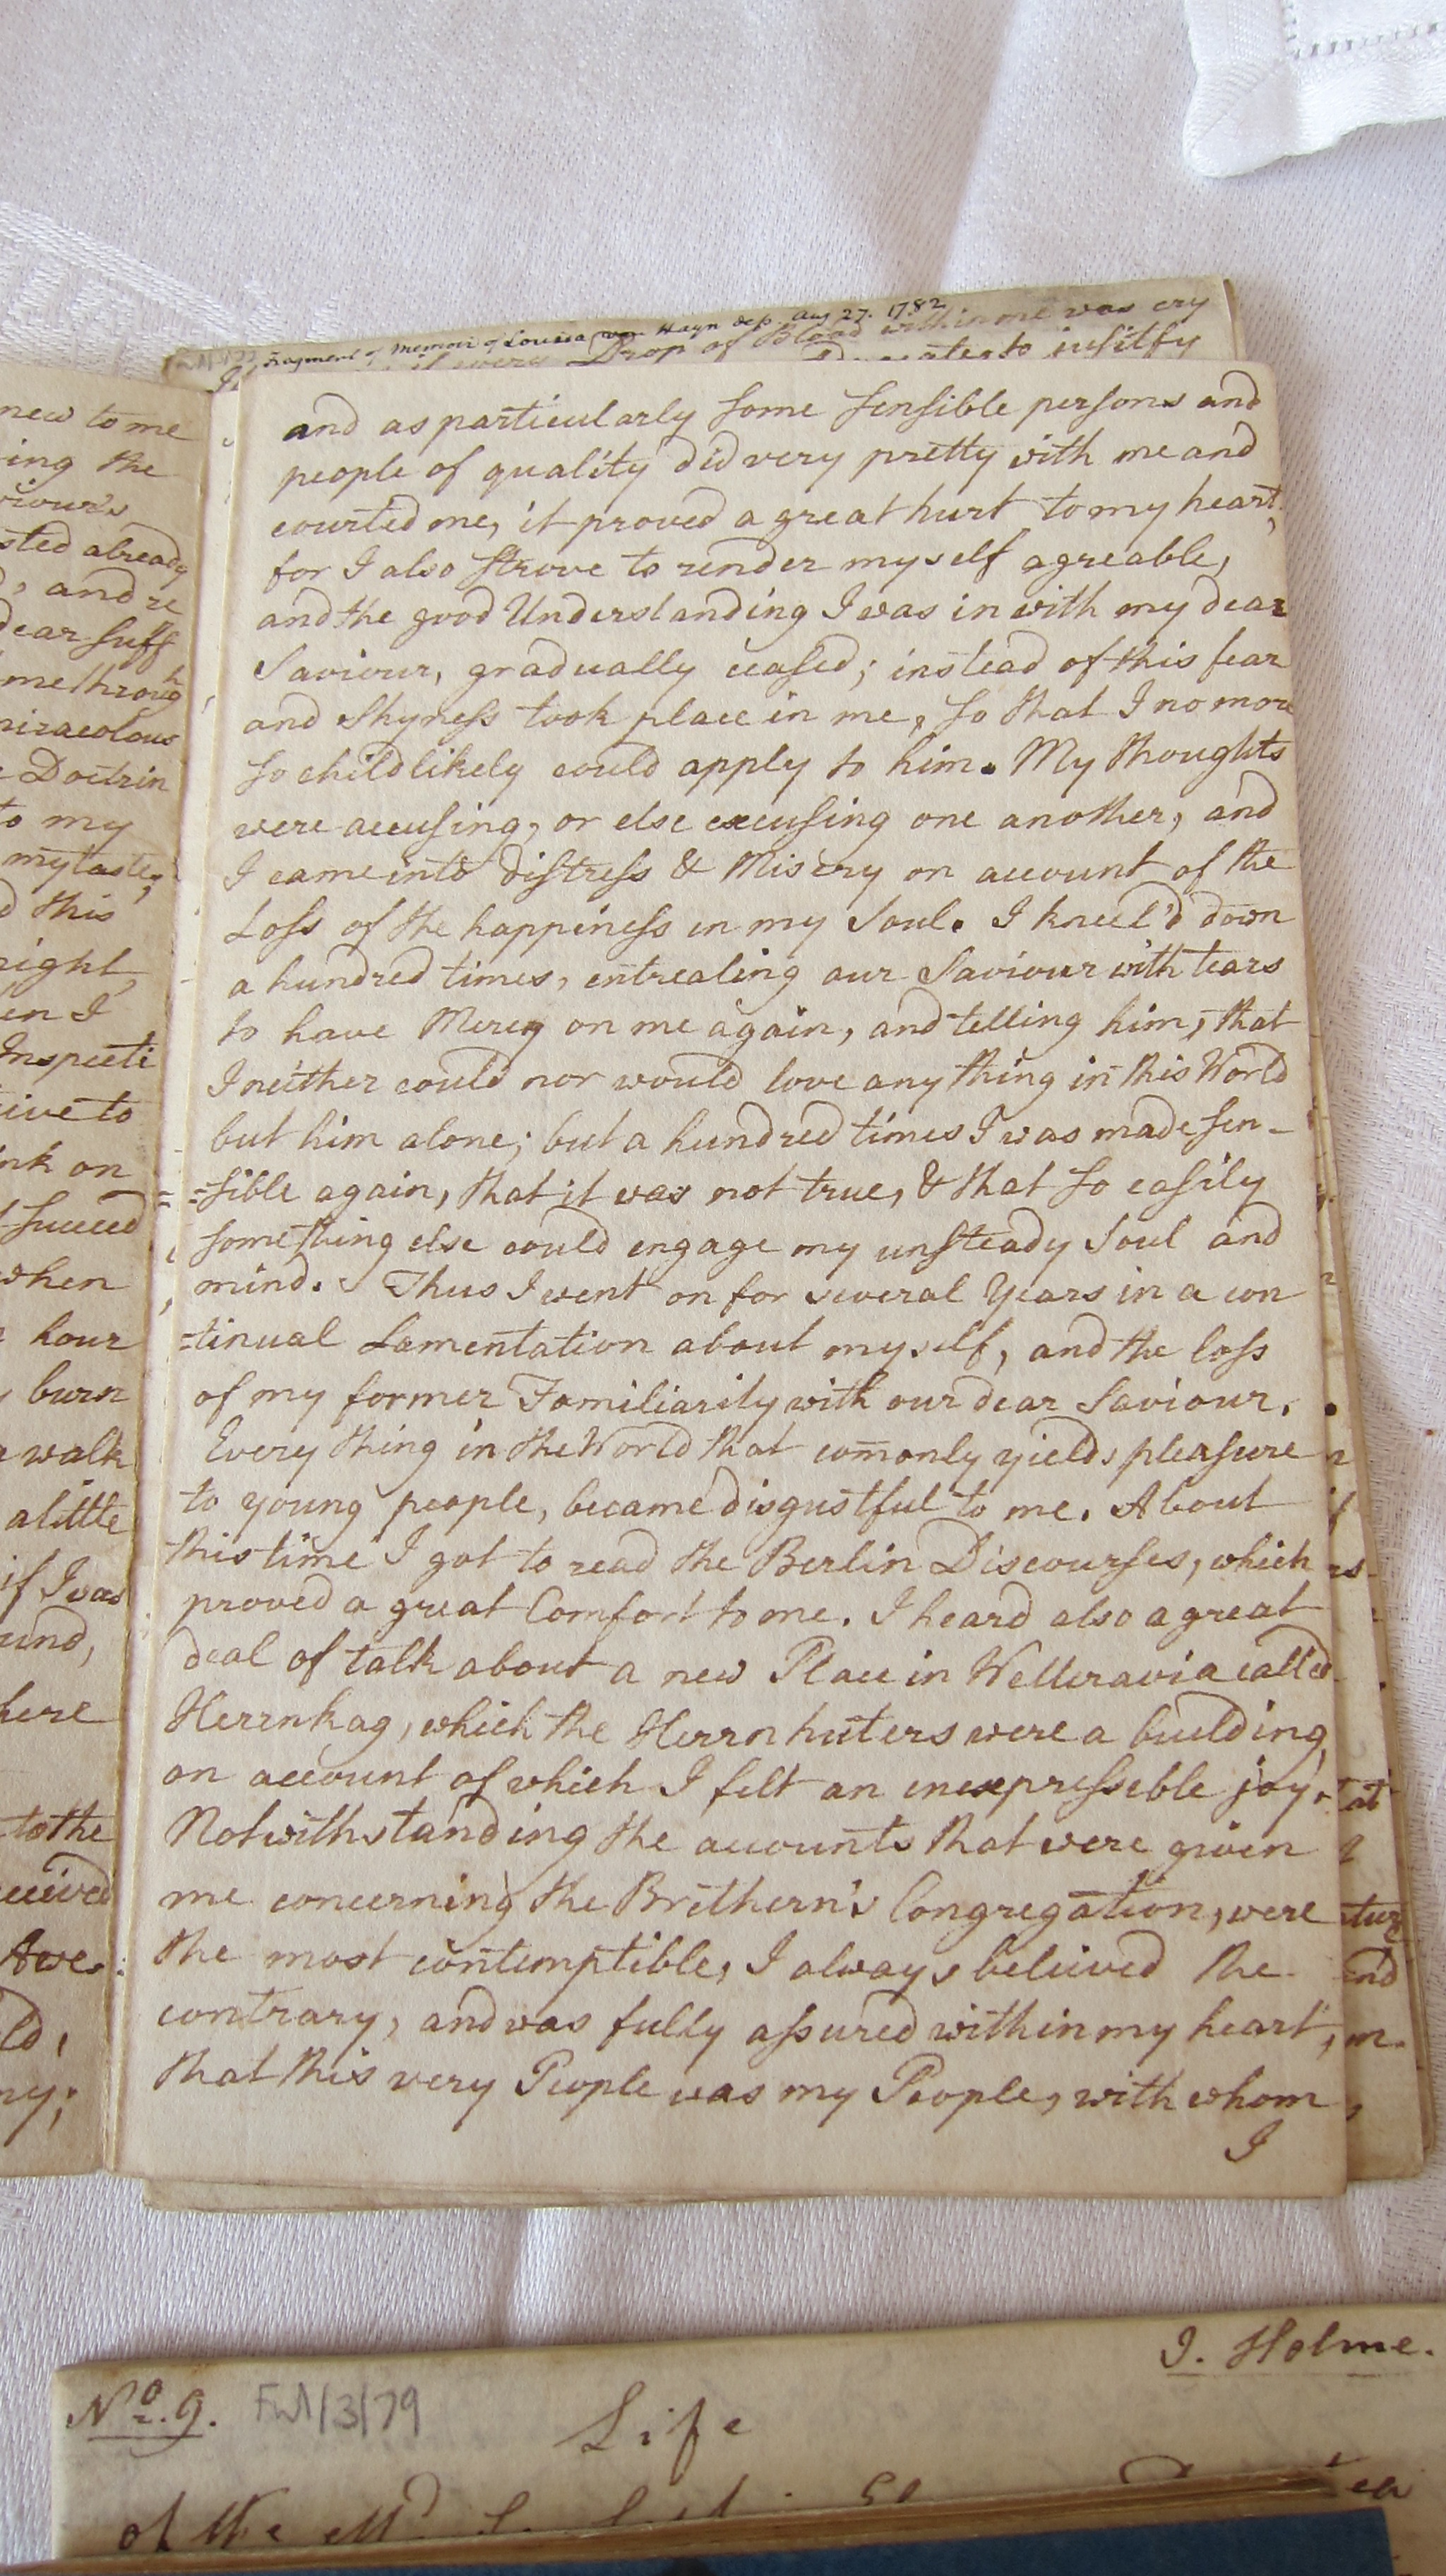 Fragment of Memoir of Louisa von Hayn dep. Aug 27. 1782
it were Drop of Blood within me was cry
to justify
new to me
ing the
viour's
sted already
, and re
dear Suff
me throug
h
miracolous
Doctrin
to my
my taste,
d this
night
en I
Inspecti
ive to
ink on
succeed
when
hour
burn
walk
a little
if I was
und,
here
to the
ceived
Awe.
ld,
ny;
and as particularly some sensible persons and
people of quality did very pretty with me and
courted me, it proved a great hurt to my heart,
for I also strove to render myself agreable,
and the good Understanding I was in with my dear
Saviour, gradually ceased; instead of this fear
and shyness took place in me, so that I no more
so childlikely could apply to him. My thoughts
were accusing, or else excusing one another, and
I came into distress & Misery on account of the
Loss of the happiness in my Soul. I kneel'd down
a hundred times, entreating our Saviour with tears
to have Mercy on me again, and telling him, that
I neither could nor would love any thing in this World
but him alone; but a hundred times I was made sen-
=sible again, that it was not true, & that so easily
something else could engage my unsteady Soul and
mind. Thus I went on for several Years in a con
=tinual Lamentation about myself, and the loss
of my former Familiarity with our dear Saviour.
Every thing in the World that comonly yields pleasure
to young people, became disgustful to me. About
this time I got to read the Berlin Discourses, which
proved a great Comfort to me. I heard also a great
deal of talk about a new Place in Wetteravia called
Herrnhag, which the Herrnhuters were a building,
on account of which I felt an inexpressible joy.
Notwithstanding the accounts that were given
me concerning the Brethern's Congregation, were
the most contemptible, I always believed the
contrary, and was fully assured within my heart,
that this very People was my People, with whom
I
tat
nd
No. 9.
FWA/3/79
J. Holme.
Life
of the